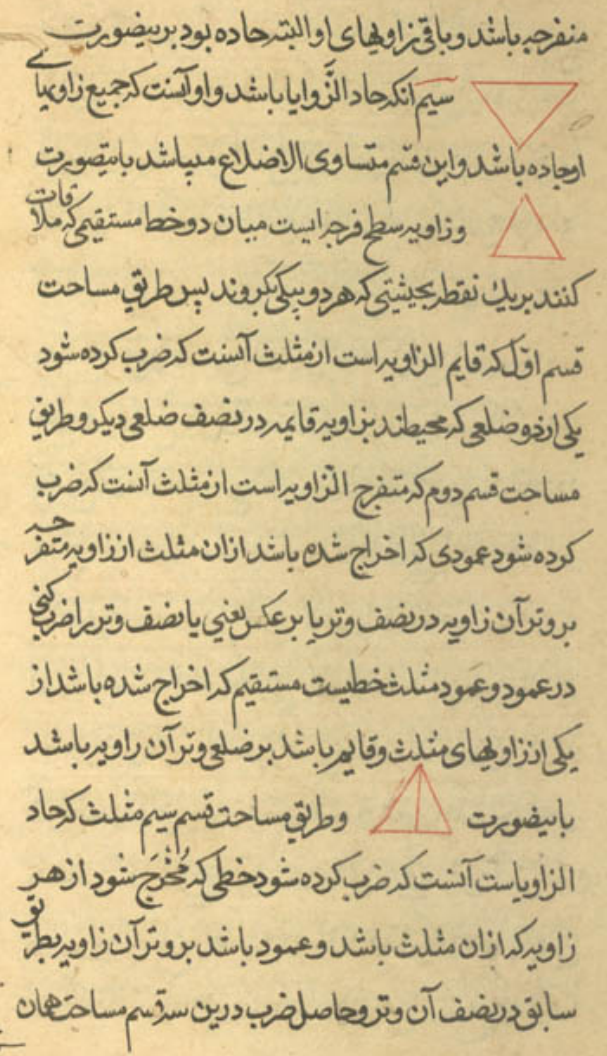 منفرجه باشد و باقی زاویهای او البته حاده بود برینصورت
سیم آنکه حاد الزوایا باشد و او آنست که جمیع زاویهای
او حاده باشد و این قسم متساوی الاضلاع میباشد باینصورت
و زاویه سطح فرجه ایست میان دو خط مستقیمی که ملاقات
کنند بر یک نقطه بحیثیتی که هر دو بیکی نکروند پس طریق مساحت
قسم اول که قایم الزاویه است از مثلث آنست که ضرب کرده شود
یکی از دو ضلعی که محیطند بزاویه قایمه در نصف ضلعی دیگر و طریق
مساحت قسم دوم که منفرج الزاویه است از مثلث آنست که ضرب
کرده شود عمودی که اخراج شده باشد ازان مثلث از زاویه منفرجه
بر وتر آن زاویه در نصف وتر یا بر عکس یعنی یا نصف وتر را ضرب کنی
در عمود و عمود مثلث خطیست مستقیم که اخراج شده باشد از
یکی از زاویهای مثلث و قایم باشد بر ضلعی وتر آن زاویه باشد
باینصورت و طریق مساحت قسم سیم مثلث که حاد
الزوایاست آنست که ضرب کرده شود خطی که مُخْرَج شود از هر
زاویه که ازان مثلث باشد و عمود باشد بر وتر آن زاویه بطریق
سابق در نصف آن وتر و حاصل ضرب درین سه قسم مساحت همان